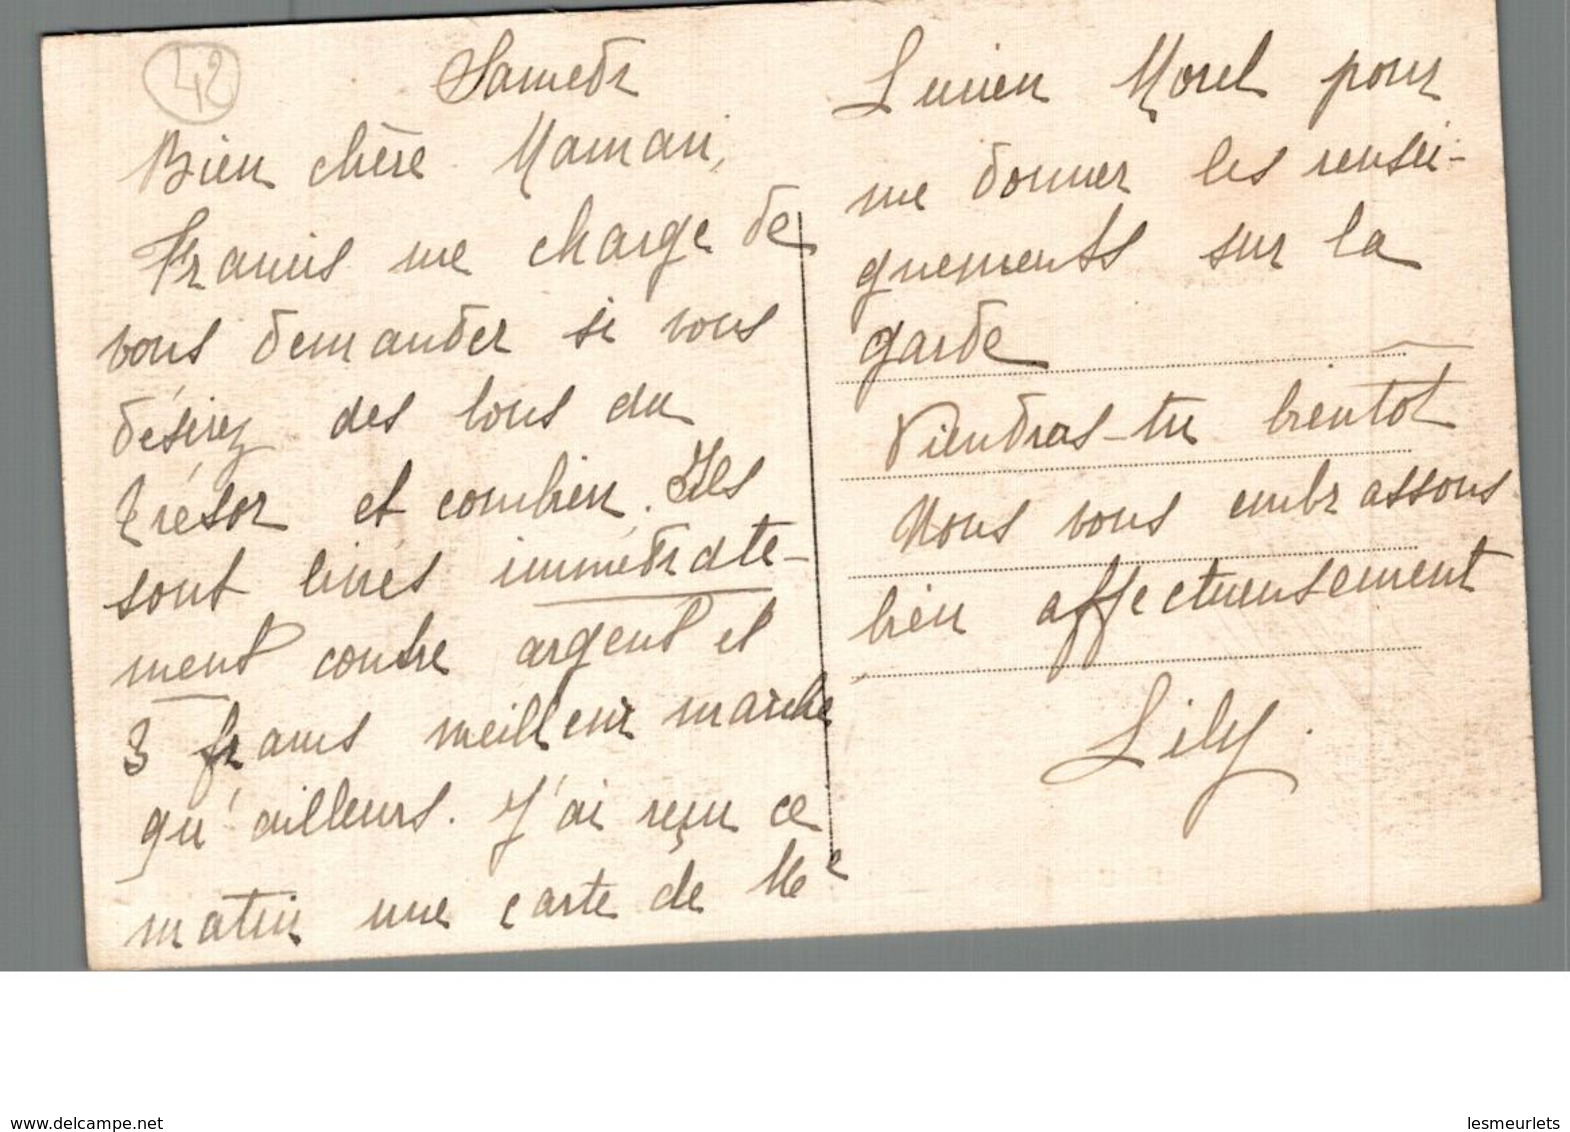 42
Samedi
Bien chère Maman,
Francis me charge de
vous demander si vous
désirez des bons du
trésor et combien. Ils
sont livrés immédiate-
ment contre argent et
3 francs meilleur marché
qu'ailleurs. J'ai reçu ce
matin une carte de Me
Lucien Morel pour
me donner les rensei-
gnements sur la
garde
Viendras-tu bientôt
Nous vous embrassons
bien affectueusement
Lily.
www.delcampe.net
lesmeurlets